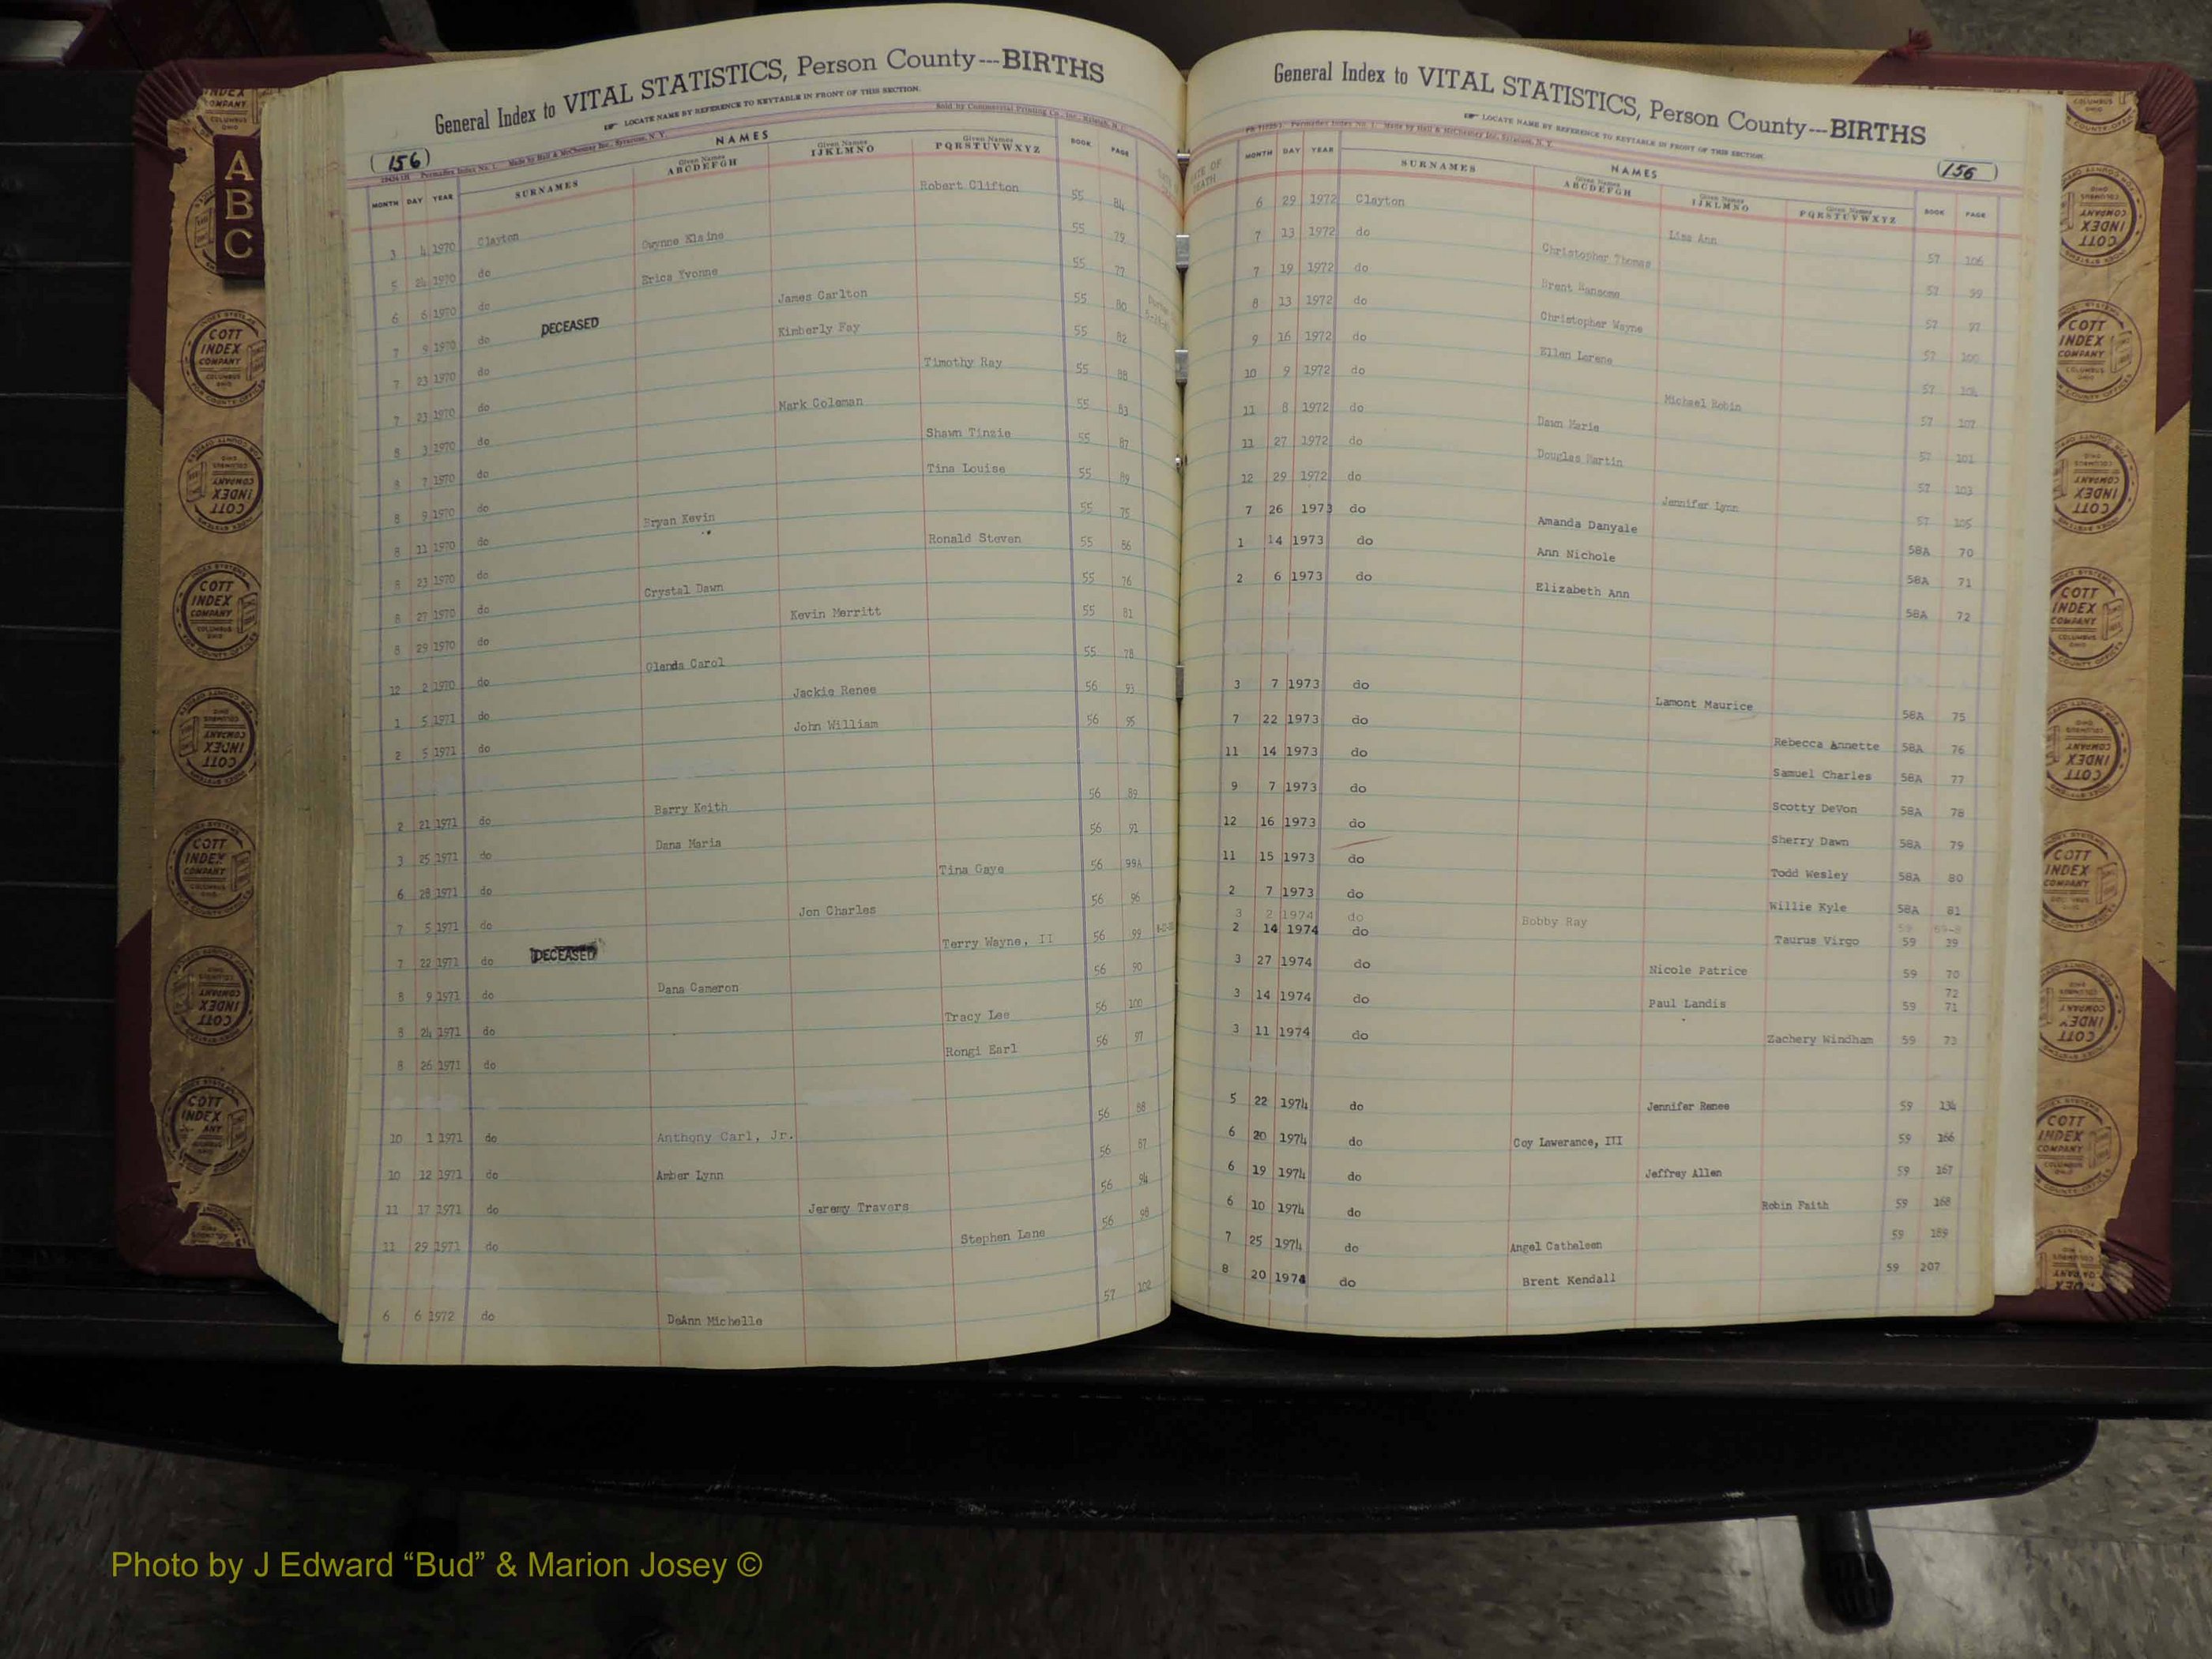 General Index to VITAL STATISTICS, Person County---BIRTHS
LOCATE NAME BY REFERENCE TO KEYTABLE IN FRONT OF THIS SECTION.
Sold by Commercial Printing Co., Inc., Raleigh, N. C.
(156)
Permaflex Index No. 1. Made by Hall & McChesney Inc., Syracuse, N. Y.
NAMES
MONTH DAY YEAR SURNAMES Given Names ABCDEFGH Given Names IJKLMNO Given Names PQRSTUVWXYZ BOOK PAGE
3 4 1970 Clayton Robert Clifton 55 84
5 24 1970 do Gwynne Elaine 55 79
6 6 1970 do Erica Yvonne 55 77
7 9 1970 do DECEASED James Carlton 55 80
7 23 1970 do Kimberly Fay 55 82
7 23 1970 do Timothy Ray 55 88
8 3 1970 do Mark Coleman 55 83
8 7 1970 do Shawn Tinzie 55 87
8 9 1970 do Tina Louise 55 89
8 11 1970 do Bryan Kevin 55 75
8 23 1970 do Ronald Steven 55 86
8 27 1970 do Crystal Dawn 55 76
8 29 1970 do Kevin Merritt 55 81
12 2 1970 do Glenda Carol 55 78
1 5 1971 do Jackie Renee 56 93
2 5 1971 do John William 56 95
2 21 1971 do Barry Keith 56 89
3 25 1971 do Dana Maria 56 91
6 28 1971 do Tina Gaye 56 99A
7 5 1971 do Jon Charles 56 96
7 22 1971 do DECEASED Terry Wayne, II 56 99
8 9 1971 do Dana Cameron 56 90
8 24 1971 do Tracy Lee 56 100
8 26 1971 do Rongi Earl 56 97
10 1 1971 do Anthony Carl, Jr. 56 88
10 12 1971 do Amber Lynn 56 87
11 17 1971 do Jeremy Travers 56 94
11 29 1971 do Stephen Lane 56 98
6 6 1972 do DeAnn Michelle 57 102
General Index to VITAL STATISTICS, Person County---BIRTHS
LOCATE NAME BY REFERENCE TO KEYTABLE IN FRONT OF THIS SECTION.
Permaflex Index No. 1. Made by Hall & McChesney Inc., Syracuse, N. Y.
(156)
NAMES
DATE OF DEATH MONTH DAY YEAR SURNAMES Given Names ABCDEFGH Given Names IJKLMNO Given Names PQRSTUVWXYZ BOOK PAGE
6 29 1972 Clayton Lisa Ann 57 106
7 13 1972 do Christopher Thomas 57 99
7 19 1972 do Brent Ransome 57 97
8 13 1972 do Christopher Wayne 57 100
9 16 1972 do Ellen Lorene 57 104
10 9 1972 do Michael Robin 57 107
11 8 1972 do Dawn Marie 57 101
11 27 1972 do Douglas Martin 57 103
12 29 1972 do Jennifer Lynn 57 105
7 26 1973 do Amanda Danyale 58A 70
1 14 1973 do Ann Nichole 58A 71
2 6 1973 do Elizabeth Ann 58A 72
3 7 1973 do Lamont Maurice 58A 75
7 22 1973 do Rebecca Annette 58A 76
11 14 1973 do Samuel Charles 58A 77
9 7 1973 do Scotty DeVon 58A 78
12 16 1973 do Sherry Dawn 58A 79
11 15 1973 do Todd Wesley 58A 80
2 7 1973 do Willie Kyle 58A 81
3 2 1974 do Bobby Ray 59 69-B
2 14 1974 do Taurus Virgo 59 39
3 27 1974 do Nicole Patrice 59 70
72
3 14 1974 do Paul Landis 59 71
3 11 1974 do Zachery Windham 59 73
5 22 1974 do Jennifer Renee 59 134
6 20 1974 do Coy Lawerance, III 59 166
6 19 1974 do Jeffrey Allen 59 167
6 10 1974 do Robin Faith 59 168
7 25 1974 do Angel Cathaleen 59 189
8 20 1974 do Brent Kendall 59 207
A
B
C
COTT INDEX COMPANY COLUMBUS OHIO
INDEX SYSTEMS FOR COUNTY OFFICES
Photo by J Edward “Bud” & Marion Josey ©